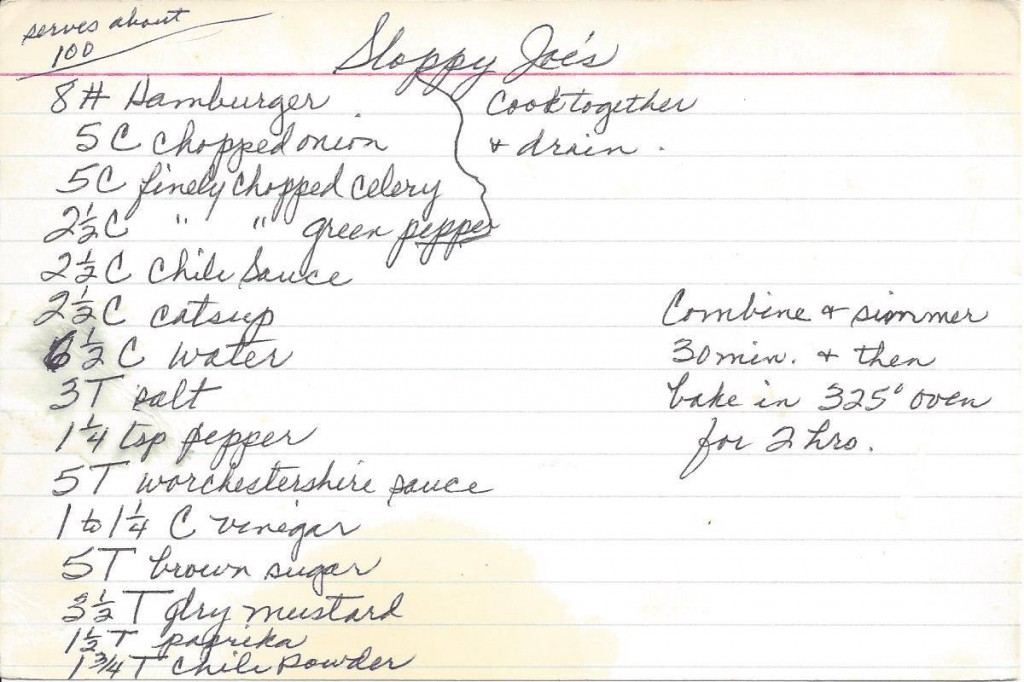 serves about
100
Sloppy Joe's
8# Hamburger
5 C chopped onion
5C finely chopped celery
2½C " " green pepper
Cook together
& drain.
2½C Chili Sauce
2½C catsup
6½C water
3T salt
1¼ tsp pepper
5T worchestershire sauce
1 to 1¼ C vinegar
5T brown sugar
3½T dry mustard
1½T paprika
1¾T Chili Powder
Combine & simmer
30 min. & then
bake in 325° oven
for 2 hrs.